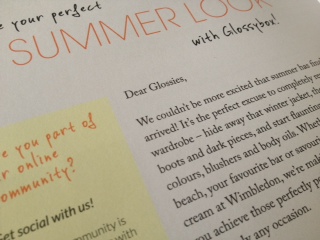 e your perfect
SUMMER LOOK
with Glossybox!
Dear Glossies,
We couldn't be more excited that summer has
arrived! It's the perfect excuse to completely
wardrobe – hide away that winter jacket,
boots and dark pieces, and start flaunting
colours, blushers and body oils.
beach, your favourite bar or
cream at Wimbledon, we're
you achieve those perfectly
any occasion.
e you part of
r online
ommunity?
et social with us!
mmunity is
with